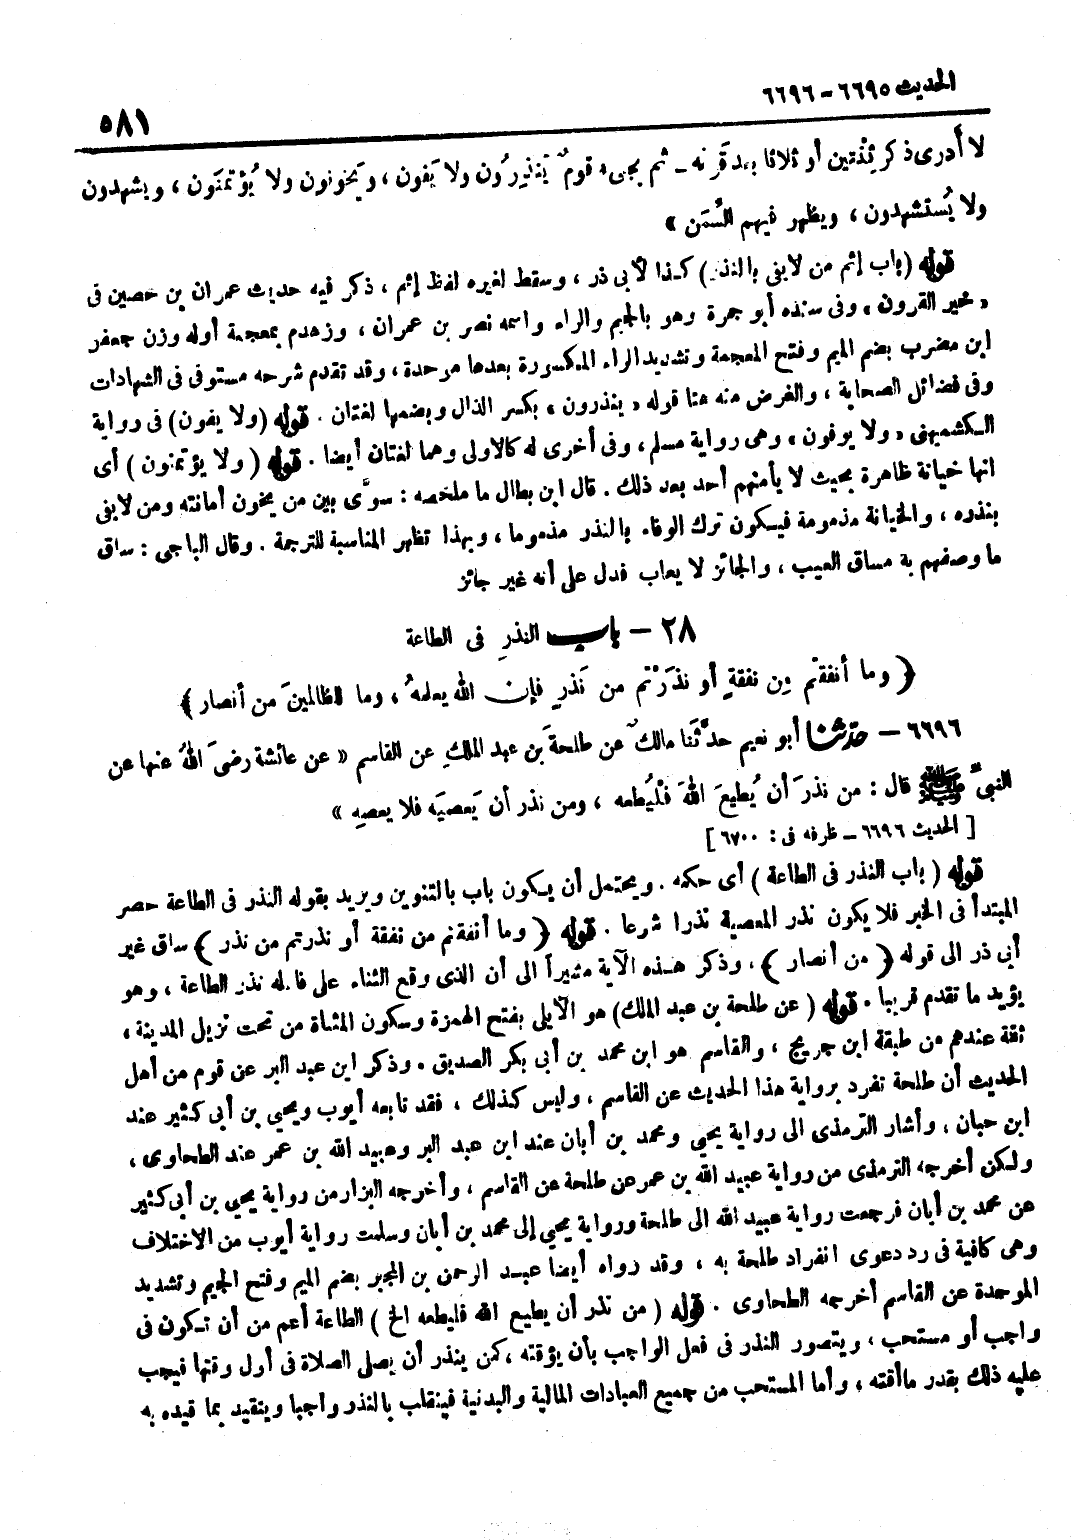 الحديث ٦٦٩٥ - ٦٦٩٦
٥٨١
لا أدرى ذكر ثنتين أو ثلاثا بعد قرنه - ثم يجىء قومٌ ينذِرُون ولا يَفون ، ويَخونون ولا يُؤتمنون ، ويشهدون
ولا يُستشهدون ، ويظهر فيهم السِّمَن »
قوله (باب إثم من لايفى بالنذر) كذا لأبى ذر ، وسقط لغيره لفظ إثم ، ذكر فيه حديث عمران بن حصين فى
« خير القرون » وفى سنده أبو جمرة وهو بالجيم والراء واسمه نصر بن عمران ، وزهدم بمعجمة أوله وزن جعفر
ابن مضرب بضم الميم وفتح المعجمة وتشديد الراء المكسورة بعدها موحدة ، وقد تقدم شرحه مستوفى فى الشهادات
وفى فضائل الصحابة ، والغرض منه هنا قوله « ينذرون » بكسر الذال وبضمها لغتان . قوله (ولا يفون) فى رواية
الكشميهنى « ولا يوفون » وهى رواية مسلم ، وفى أخرى له كالاولى وهما لغتان أيضا . قوله ( ولا يؤتمنون ) أى
انها خيانة ظاهرة بحيث لا يأمنهم أحد بعد ذلك . قال ابن بطال ما ملخصه : سوَّى بين من يخون أمانته ومن لايفى
بنذره ، والخيانة مذمومة فيكون ترك الوفاء بالنذر مذموما ، وبهذا تظهر المناسبة للترجمة . وقال الباجى : ساق
ما وصفهم به مساق العيب ، والجائز لا يعاب فدل على أنه غير جائز
٢٨ - باب النذرِ فى الطاعة
﴿ وما أنفقتم مِن نفقةٍ أو نذَرْتم من نَذرٍ فإن اللّٰه يعلمهُ ، وما للظالمينَ من أنصار ﴾
٦٦٩٦ - حدثنا أبو نعيم حدَّثَنا مالكٌ عن طلحةَ بن عبد الملكِ عن القاسم « عن عائشة رضىَ اللّٰهُ عنها عن
النبىِّ ﷺ قال : من نذرَ أن يُطيعَ اللّٰهَ فلْيُطعه ، ومن نذر أن يَعصيَه فلا يعصِهِ »
[ الحديث ٦٦٩٦ - طرفه فى : ٦٧٠٠ ]
قوله ( باب النذر فى الطاعة ) أى حكمه . ويحتمل أن يكون باب بالتنوين ويريد بقوله النذر فى الطاعة حصر
المبتدأ فى الخبر فلا يكون نذر المعصية نذرا شرعا . قوله ﴿ وما أنفقتم من نفقة أو نذرتم من نذر ﴾ ساق غير
أبى ذر الى قوله ﴿ من أنصار ﴾ ، وذكر هذه الآية مشيراً الى أن الذى وقع الثناء على فاعله نذر الطاعة ، وهو
يؤيد ما تقدم قريبا . قوله ( عن طلحة بن عبد الملك) هو الأيلى بفتح الهمزة وسكون المثناة من تحت نزيل المدينة ،
ثقة عندهم من طبقة ابن جريج ، والقاسم هو ابن محمد بن أبى بكر الصديق . وذكر ابن عبد البر عن قوم من أهل
الحديث أن طلحة تفرد برواية هذا الحديث عن القاسم ، وليس كذلك ، فقد تابعه أيوب ويحيى بن أبى كثير عند
ابن حبان ، وأشار الترمذى الى رواية يحيى ومحمد بن أبان عند ابن عبد البر وعبيد الله بن عمر عند الطحاوى ،
ولكن أخرجه الترمذى من رواية عبيد الله بن عمر عن طلحة عن القاسم ، وأخرجه البزار من رواية يحيى بن أبى كثير
عن محمد بن أبان فرجعت رواية عبيد الله الى طلحة ورواية يحيى إلى محمد بن أبان وسلمت رواية أيوب من الاختلاف
وهى كافية فى رد دعوى انفراد طلحة به ، وقد رواه أيضا عبد الرحمن بن المجبر بضم الميم وفتح الجيم وتشديد
الموحدة عن القاسم أخرجه الطحاوى . قوله ( من نذر أن يطيع الله فليطعه الخ ) الطاعة أعم من أن تكون فى
واجب أو مستحب ، ويتصور النذر فى فعل الواجب بأن يؤقته ، كمن ينذر أن يصلى الصلاة فى أول وقتها فيجب
عليه ذلك بقدر ماأقته ، وأما المستحب من جميع العبادات المالية والبدنية فينقلب بالنذر واجبا ويتقيد بما قيده به